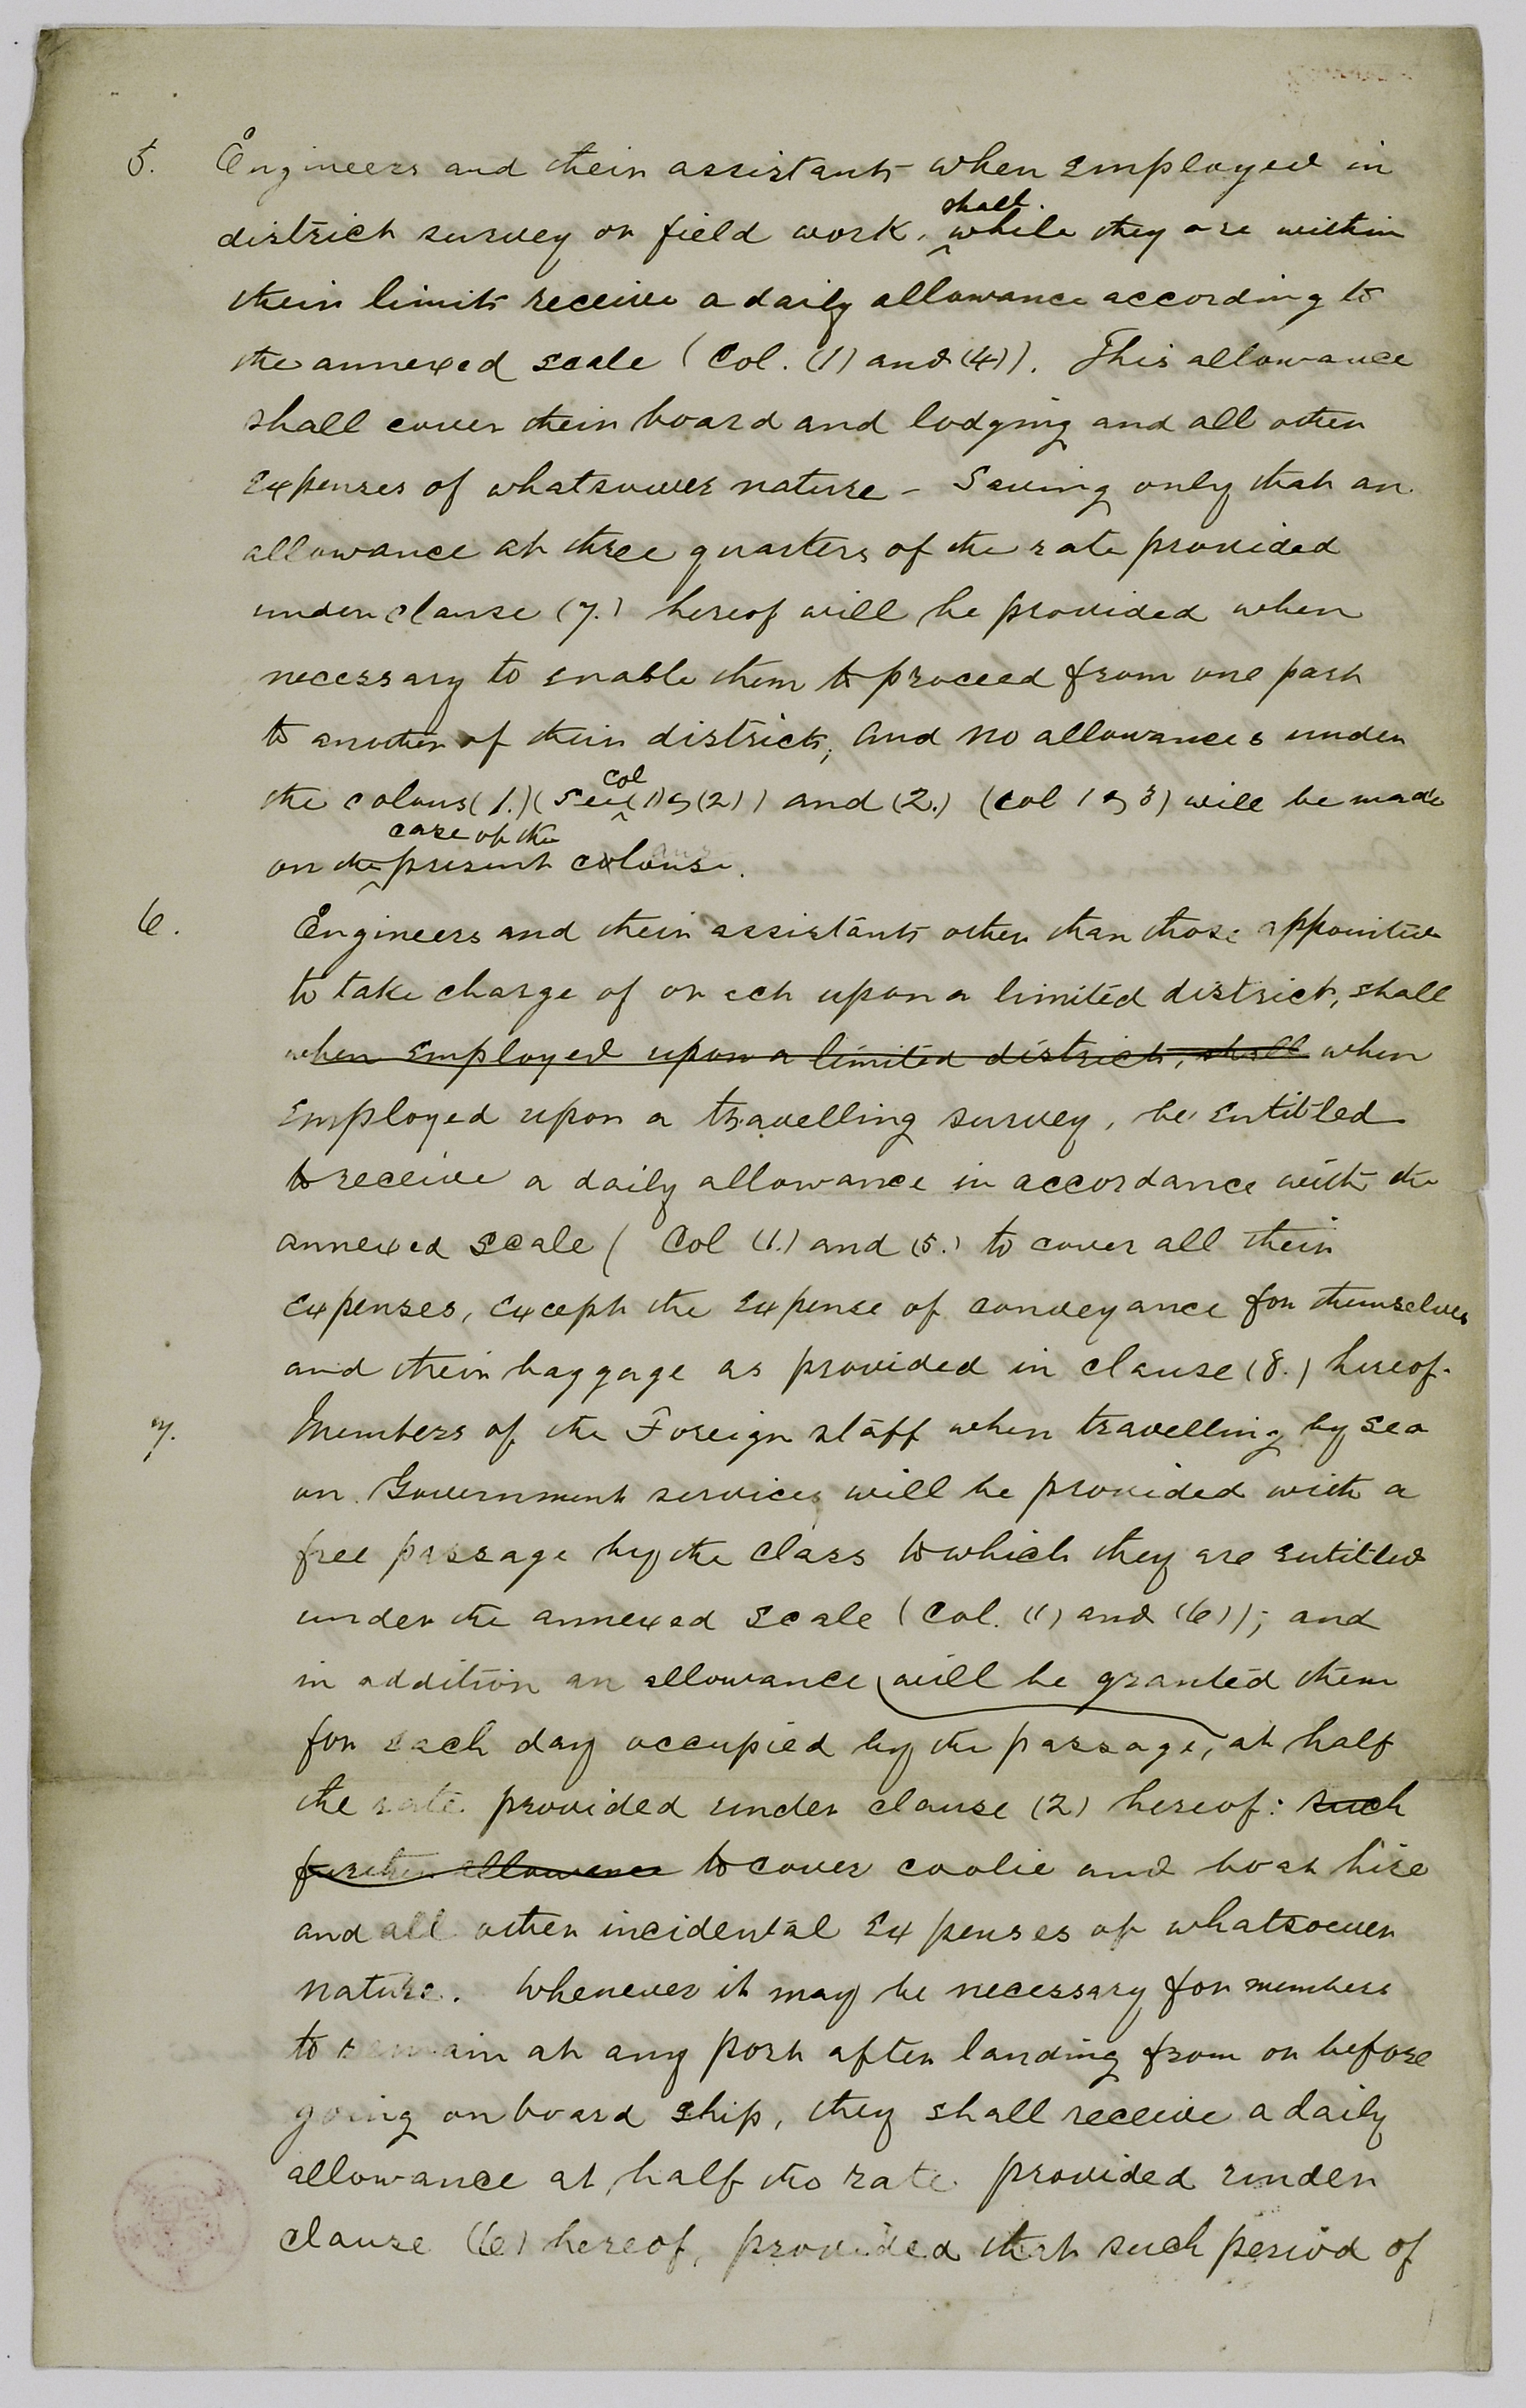 5. Engineers and their assistants when employed in
shall
district survey or field work, while they are within
their limits receive a daily allowance according to
the annexed scale (Col. (1) and (4)). This allowance
shall cover their board and lodging and all other
expenses of whatsoever nature - Saving only that an
allowance at three quarters of the rate provided
under clause (7.) hereof will be provided when
necessary to enable them to proceed from one part
to another of their district; and no allowances under
col
the claus (1.) ( (1) & (2)) and (2.) (col 1 & 3) will be made
case of the
on the present clause.
6. Engineers and their assistants other than those appointed
to take charge of or act upon a limited district, shall
when employed upon a limited district, shall when
employed upon a travelling survey, be entitled
to receive a daily allowance in accordance with the
annexed scale ( Col (1.) and (5.) to cover all their
expenses, except the expense of conveyance for themselves
and their baggage as provided in clause (8.) hereof.
7. Members of the Foreign staff when travelling by sea
on Government services will be provided with a
free passage by the class to which they are entitled
under the annexed scale (Col. (1) and (6)); and
in addition an allowance will be granted them
for each day occupied by the passage, at half
the rate provided under clause (2) hereof: such
further allowance to cover coolie and boat hire
and all other incidental expenses of whatsoever
nature. Whenever it may be necessary for members
to remain at any port after landing from or before
going on board ship, they shall receive a daily
allowance at half the rate provided under
clause (6) hereof, provided that such period of